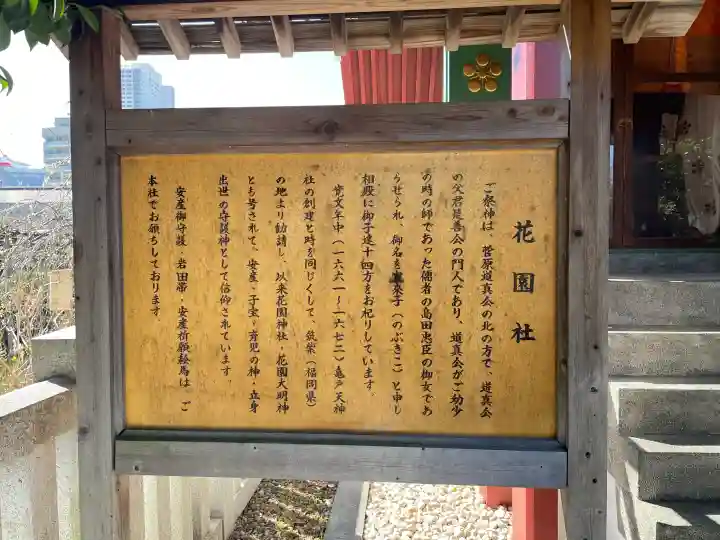 花園社
ご祭神は、菅原道真公の北の方で、道真公
の父君是善公の門人であり、道真公がご幼少
の時の師であった儒者の島田忠臣の御女であ
らせられ、御名を宣来子（のぶきこ）と申し
相殿に御子達十四方をお祀りしています。
寛文年中（一六六一～一六七二）亀戸天神
社の創建と時を同じくして、筑紫（福岡県）
の地より勧請し、以来花園神社・花園大明神
とも号されて、安産・子宝・育児の神・立身
出世の守護神として信仰されています。
安産御守護・岩田帯・安産祈願絵馬は、ご
本社でお頒ちしております。